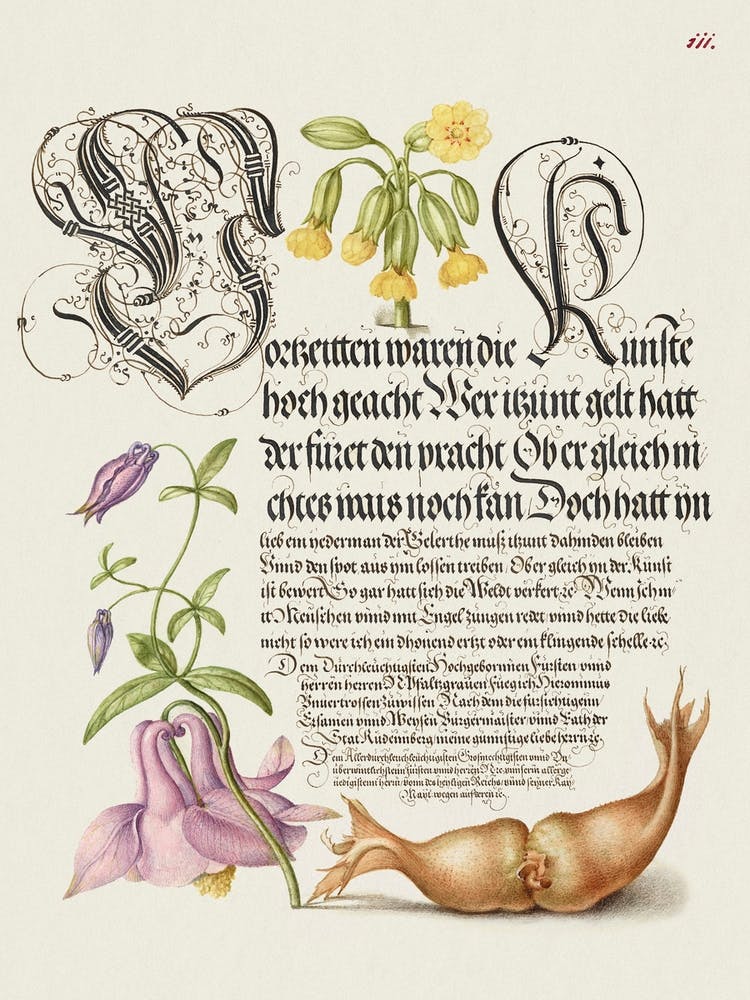 iii.
Vortzeitten waren die Kunste
hoch geacht Wer itzunt gelt hatt
der füret den pracht Ob er gleich ni
chtes wais noch kan Doch hatt yn
lieb ein yederman der Gelerthe muß itzunt dahinden bleiben
Vnnd den spot aus ym lossen treiben / Ober gleich yn der Kunst
ist bewert So gar hatt sich die Weldt verkert ꝛc Wenn ich mi
tt Menschen vnnd mit Engel zungen redet vnnd hette die liebe
nicht so were ich ein dhonend ertzt oder ein klingende schelle ꝛc
Dem Durchleuchtigsten Hochgebornnen Fürsten vnnd
herren herren Pfaltzgrauen Hieronimus
zuwissen Nach dem die fürsichtigenn
Ersamen vnnd Weysen Bürgermaister vnnd Rath der
Stat meine günnstige liebe herrn ꝛc
Dem Allerdurchleuchtigisten Grosmechtigisten vnnd Vn
überwintlichsten fürsten vnnd herren vnnserm allerge
nedigistenn herrn / vonn des heyligen Reichs / vnnd seiner Kay
Mayt wegen aufderen ꝛc